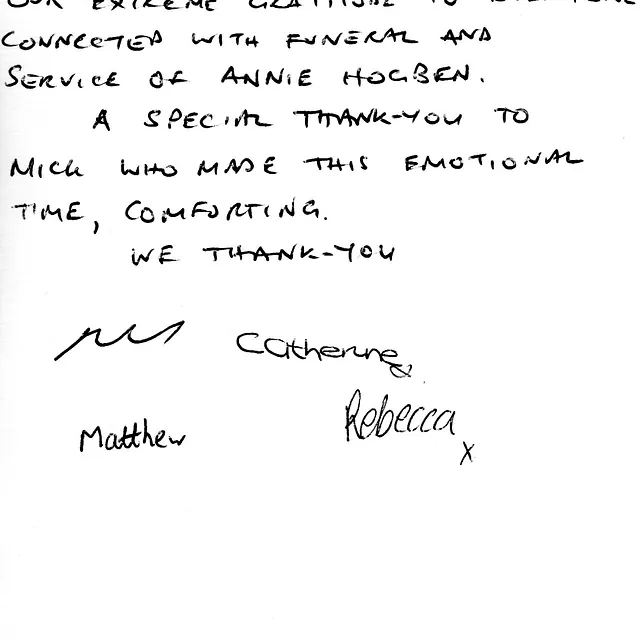 OUR EXTREME GRATITUDE TO EVERYONE
CONNECTED WITH FUNERAL AND
SERVICE OF ANNIE HOGBEN.
A SPECIAL THANK-YOU TO
MICK WHO MADE THIS EMOTIONAL
TIME, COMFORTING.
WE THANK-YOU
Catherine
&
Matthew
Rebecca
x